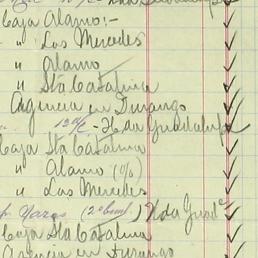 Caja Alamo:-
" Las Mercedes
" Alamo
" Sta Catalina
Agencia en Durango
" 12 M/C - Hda Guadalupe
Caja Sta Catalina
" Alamo (0/0)
" Las Mercedes
Yaros (2º Cuml) Hda Guade
Caja Sta Catalina
Agencia en Durango